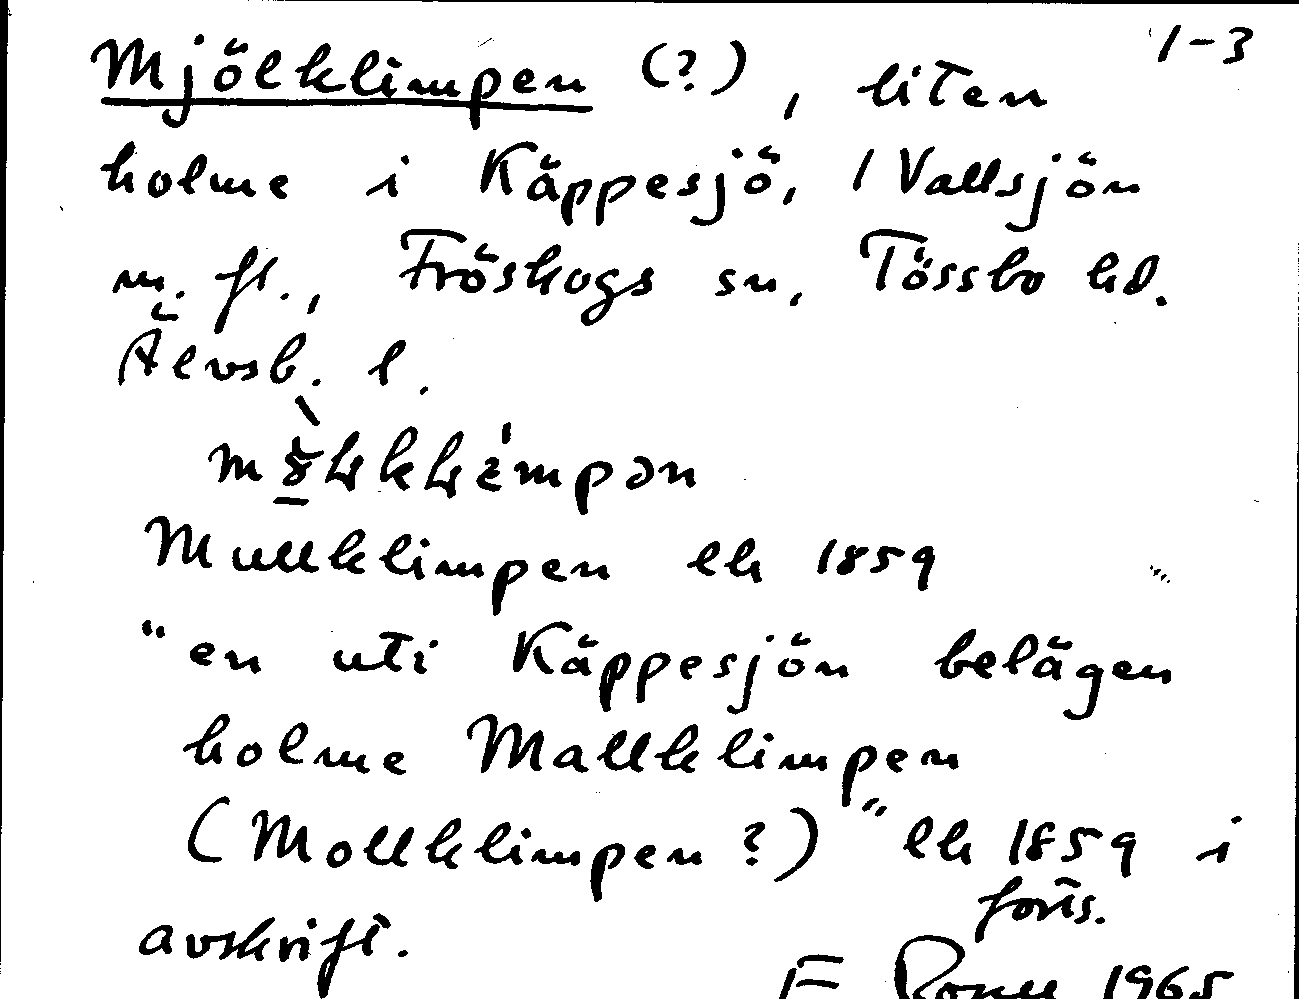 1-3
Mjölklimpen (?), liten
holme i Käppesjö, 1 Vallsjön
m. fl., Fröskogs sn, Tössbo hd.
Älvsb. l.
Mullklimpen lh 1859
"en uti Käppesjön belägen
holme Mallklimpen
(Mollklimpen ?)" lh 1859 i
avskrift.
forts.
1965